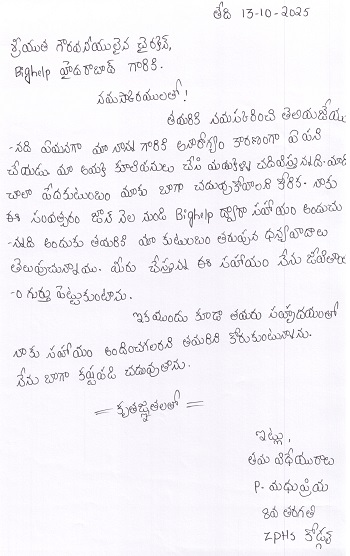 తేది 13-10-2025
శ్రీయుత గౌరవనీయులైన చైర్మెన్,
Bighelp హైదరాబాద్ గారికి.
నమస్కారములతో!
తమరికి నమస్కరించి తెలియజేయు
-నది ఏమనగా మా నాన్న గారికి అనారోగ్యం కారణంగా ఏ పని
చేయడు. మా అమ్మ కూలిపనులు చేసి మమ్మల్ని చదివిస్తున్నది. మాది
చాలా పేదకుటుంబం మాకు బాగా చదువుకోవాలని కోరిక. నాకు
ఈ సంవత్సరం జూన్ నెల నుండి Bighelp ద్వారా సహాయం అందుచు
-న్నది అందుకు తమరికి మా కుటుంబం తరుపున ధన్యవాదాలు
తెలుపుచున్నాము. మీరు చేస్తున్న ఈ సహాయం నేను జీవితాం
-తం గుర్తు పెట్టుకుంటాను.
ఇకముందు కూడా తమరు సహృదయంతో
నాకు సహాయం అందించగలరని తమరిని కోరుకుంటున్నాను.
నేను బాగా కష్టపడి చదువుతాను.
= కృతజ్ఞతలతో =
ఇట్లు,
తమ విధేయురాలు
P. మధుప్రియ
8వ తరగతి
ZPHS కోడ్గల్